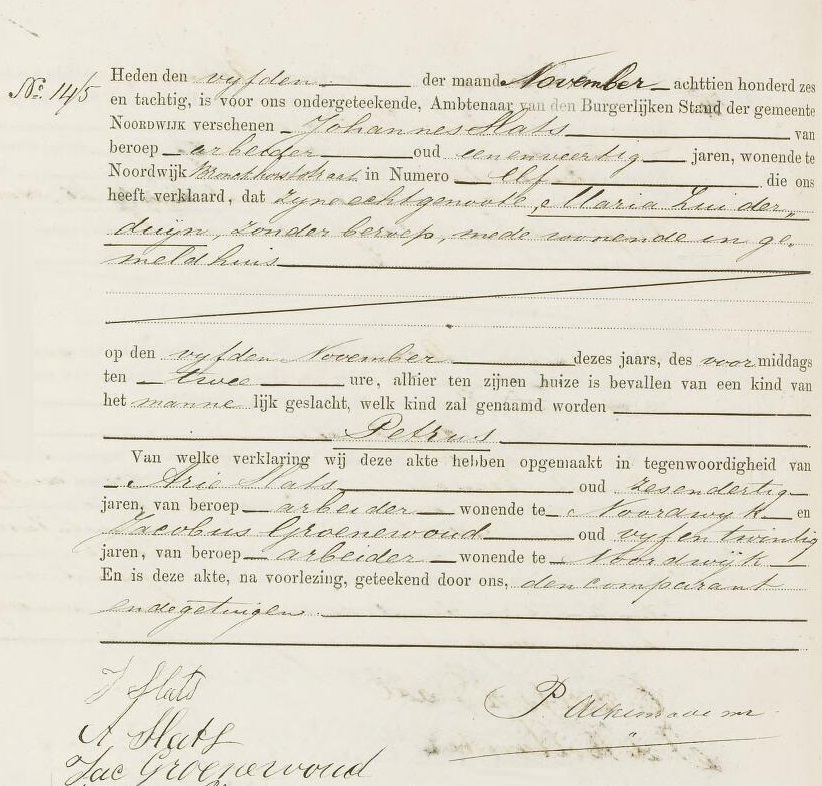 No. 145 Heden den vyfden der maand November achttien honderd zes
en tachtig, is voor ons ondergeteekende, Ambtenaar van den Burgerlijken Stand der gemeente
NOORDWIJK verschenen Johannes Slats van
beroep arbeider oud eenenveertig jaren, wonende te
Noordwijk Bronckhorststraat in Numero elf die ons
heeft verklaard, dat zyne echtgenoote, Maria Luider„
duijn, zonder beroep, mede wonende in ge„
meld huis
op den vyfden November dezes jaars, des voormiddags
ten twee ure, alhier ten zijnen huize is bevallen van een kind van
het mannelijk geslacht, welk kind zal genaamd worden
Petrus
Van welke verklaring wij deze akte hebben opgemaakt in tegenwoordigheid van
Arie Slats oud zesendertig
jaren, van beroep arbeider wonende te Noordwyk en
Jacobus Groenewoud oud vyfentwintig
jaren, van beroep arbeider wonende te Noordwijk
En is deze akte, na voorlezing, geteekend door ons, den comparant
en de getuigen.
J Slats
P Alkemade
A Slats
Jac Groenewoud